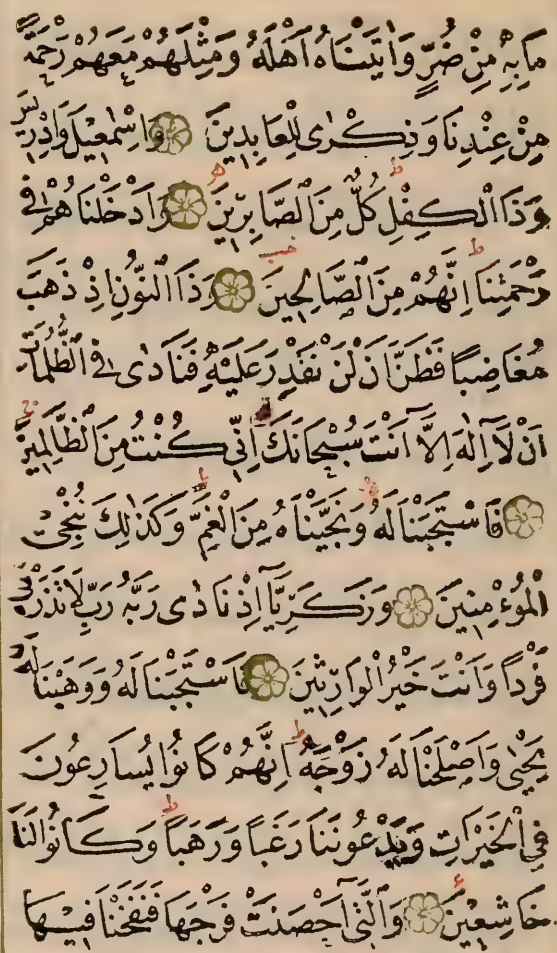 مَابِهِ مِنْ ضُرٍّ وَاٰتَيْنَاهُ اَهْلَهُ وَمِثْلَهُمْ مَعَهُمْ رَحْمَةً
مِنْ عِنْدِنَا وَذِكْرٰى لِلْعَابِدِينَ وَاِسْمٰعِيلَ وَاِدْرِيسَ
وَذَا الْكِفْلِ كُلٌّ مِنَ الصَّابِرِينَ وَاَدْخَلْنَاهُمْ فِى
رَحْمَتِنَا اِنَّهُمْ مِنَ الصَّالِحِينَ وَذَا النُّونِ اِذْ ذَهَبَ
مُغَاضِبًا فَظَنَّ اَنْ لَنْ نَقْدِرَ عَلَيْهِ فَنَادٰى فِى الظُّلُمَاتِ
اَنْ لَٓا اِلٰهَ اِلَّٓا اَنْتَ سُبْحَانَكَ اِنِّى كُنْتُ مِنَ الظَّالِمِينَ
فَاسْتَجَبْنَا لَهُ وَنَجَّيْنَاهُ مِنَ الْغَمِّ وَكَذٰلِكَ نُنْجِى
الْمُؤْمِنِينَ وَزَكَرِيَّٓا اِذْ نَادٰى رَبَّهُ رَبِّ لَا تَذَرْنِى
فَرْدًا وَاَنْتَ خَيْرُ الْوَارِثِينَ فَاسْتَجَبْنَا لَهُ وَوَهَبْنَا لَهُ
يَحْيٰى وَاَصْلَحْنَا لَهُ زَوْجَهُ اِنَّهُمْ كَانُوا يُسَارِعُونَ
فِى الْخَيْرَاتِ وَيَدْعُونَنَا رَغَبًا وَرَهَبًا وَكَانُوا لَنَا
خَاشِعِينَ وَالَّتِٓى اَحْصَنَتْ فَرْجَهَا فَنَفَخْنَا فِيهَا